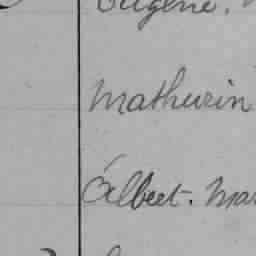 Eugène.
Mathurin
Albert. Mar